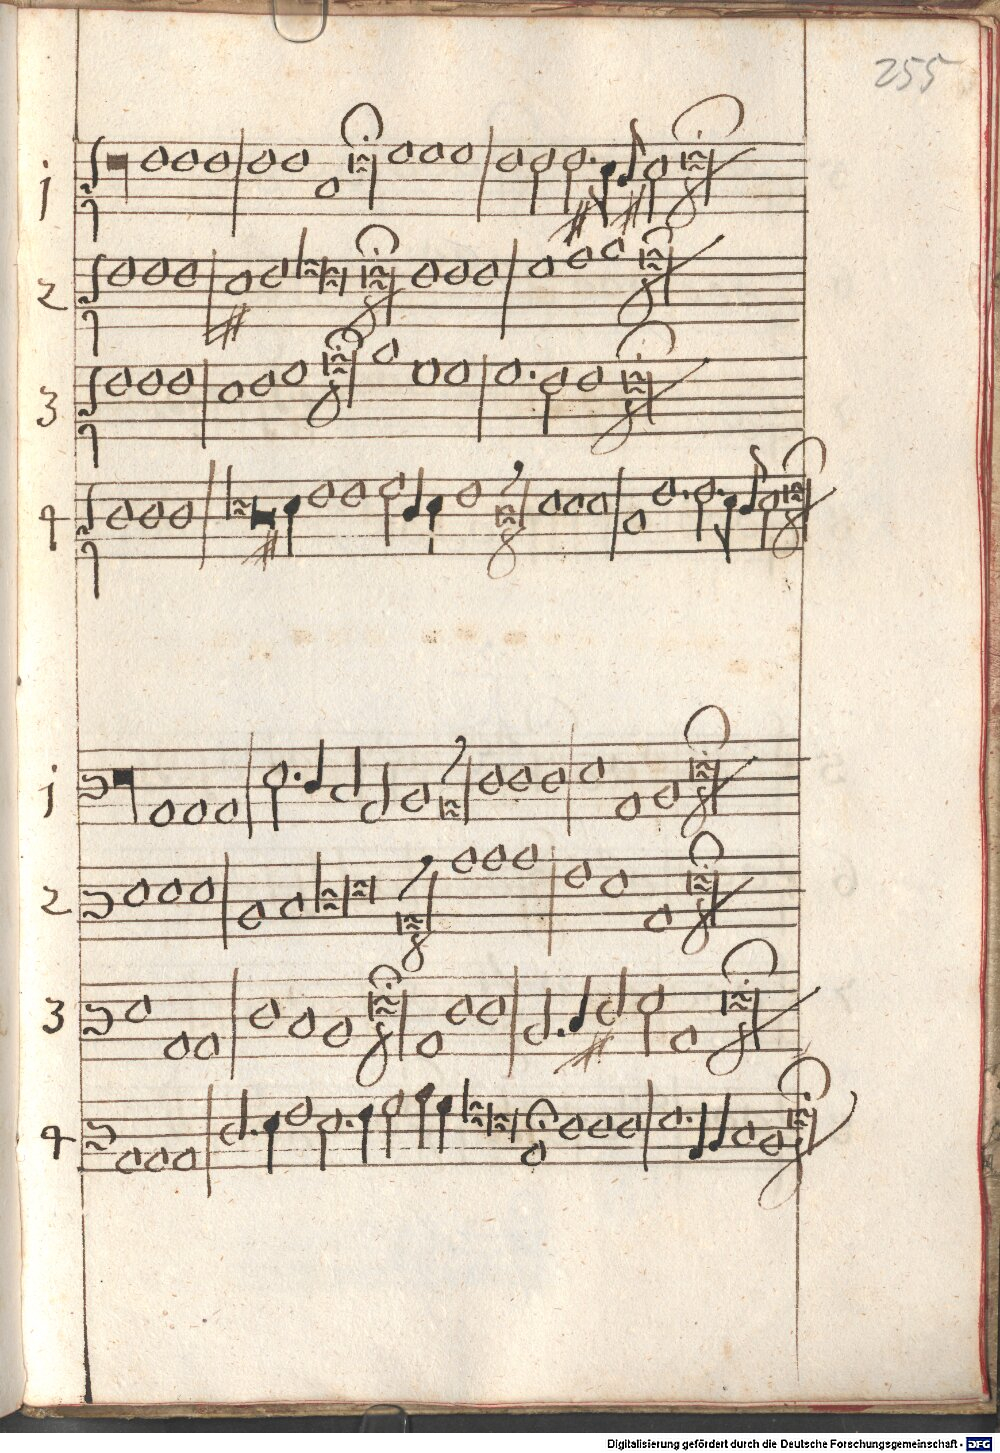 255
1
2
3
4
1
2
3
4
Digitalisierung gefördert durch die Deutsche Forschungsgemeinschaft - DFG